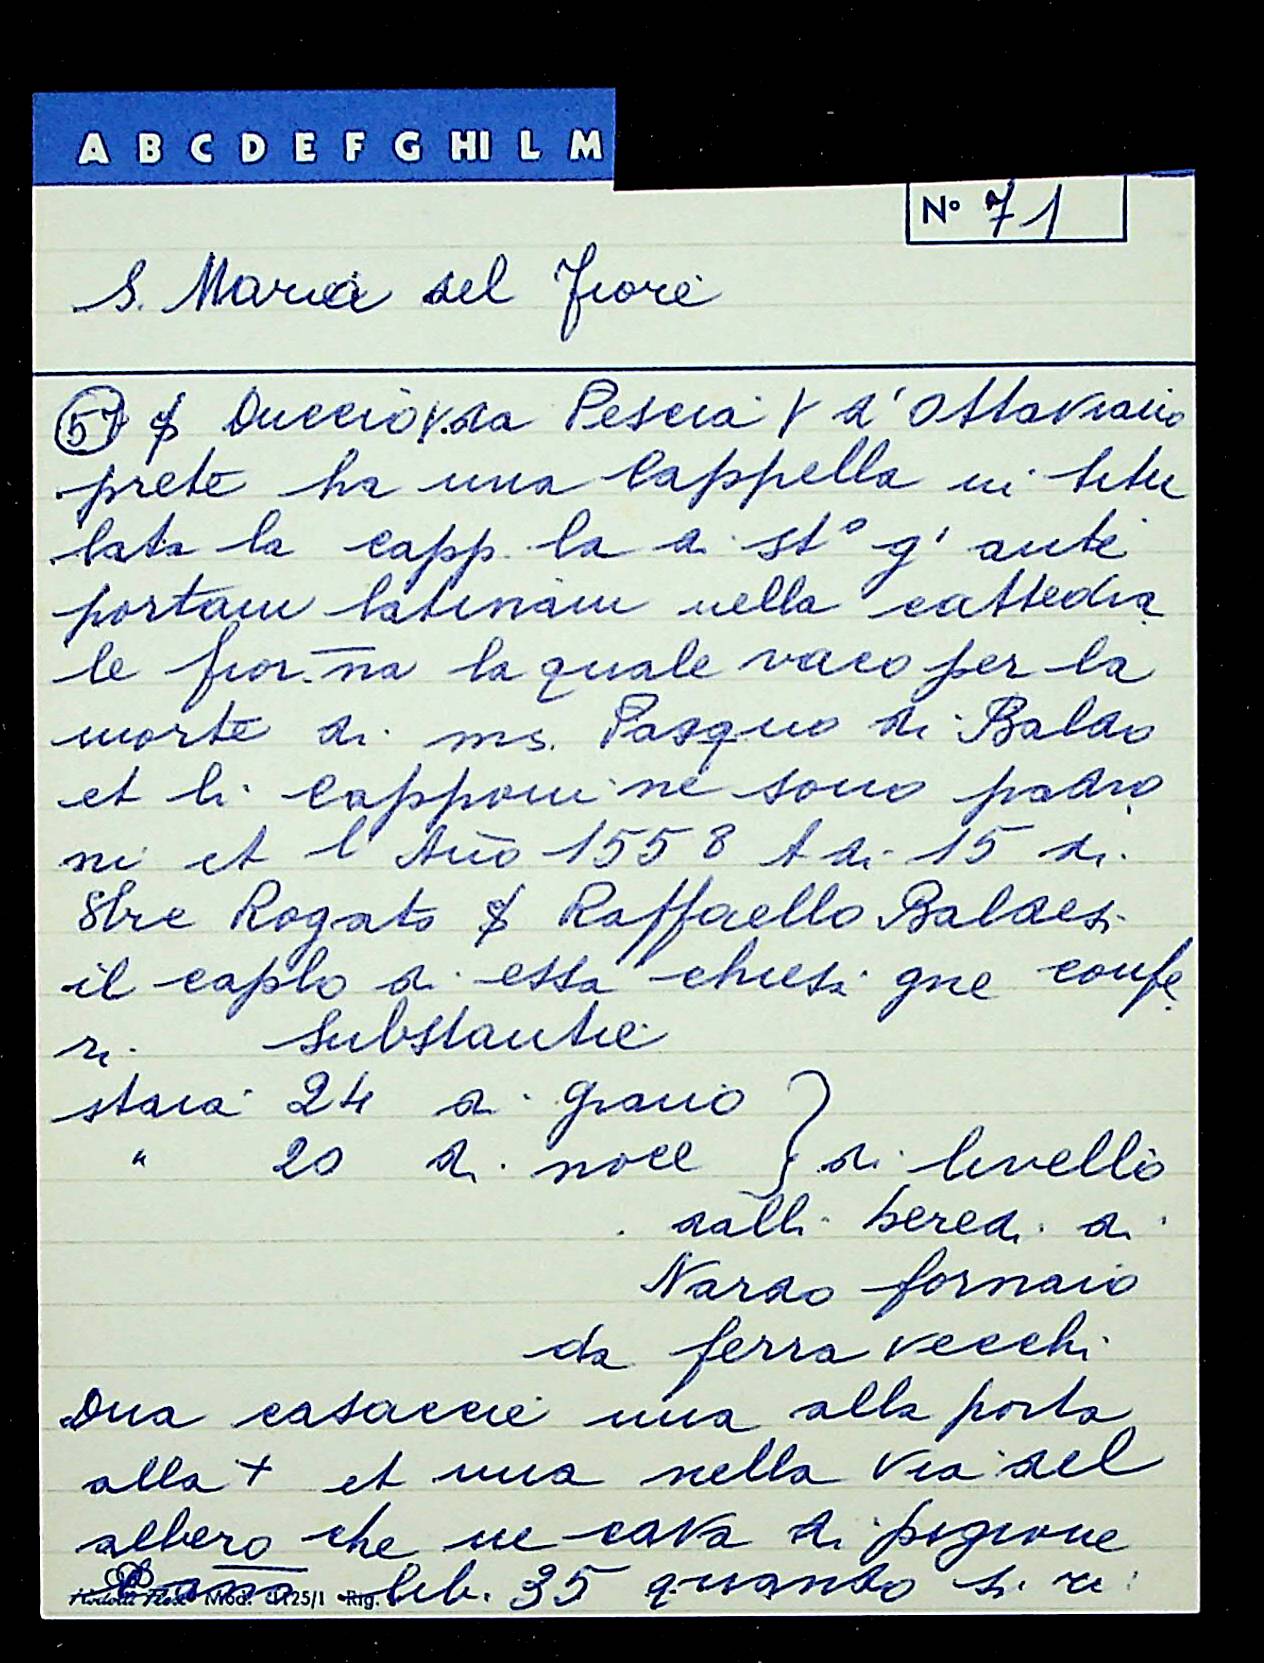 A B C D E F G HI L M
Nº 71
S. Maria del Fiore
57 $ Duccio da Pescia d' Ottaviano
prete ha una Cappella in titu
lata la capp. la di stº g' ante
portam latinam nella cattedra
le fior.na la quale vaco per la
morte di ms. Pasquo di Baldo
et li Capponi ne sono padro
ni et l' Año 1558 A di 15 di
8bre Rogato $ Raffaello Baldesi
il caplo di essa chiesa gne confe
ri. Substantie
staia 24 di grano
" 20 di noce } di livello
dalli heredi di
Nardo fornaio
da ferra vecchi
Dua casaccie una alla porta
alla + et una nella via del
albero che ne cava di pigione
lib. 35 quando si ri
Mod. 125/1 Rig.